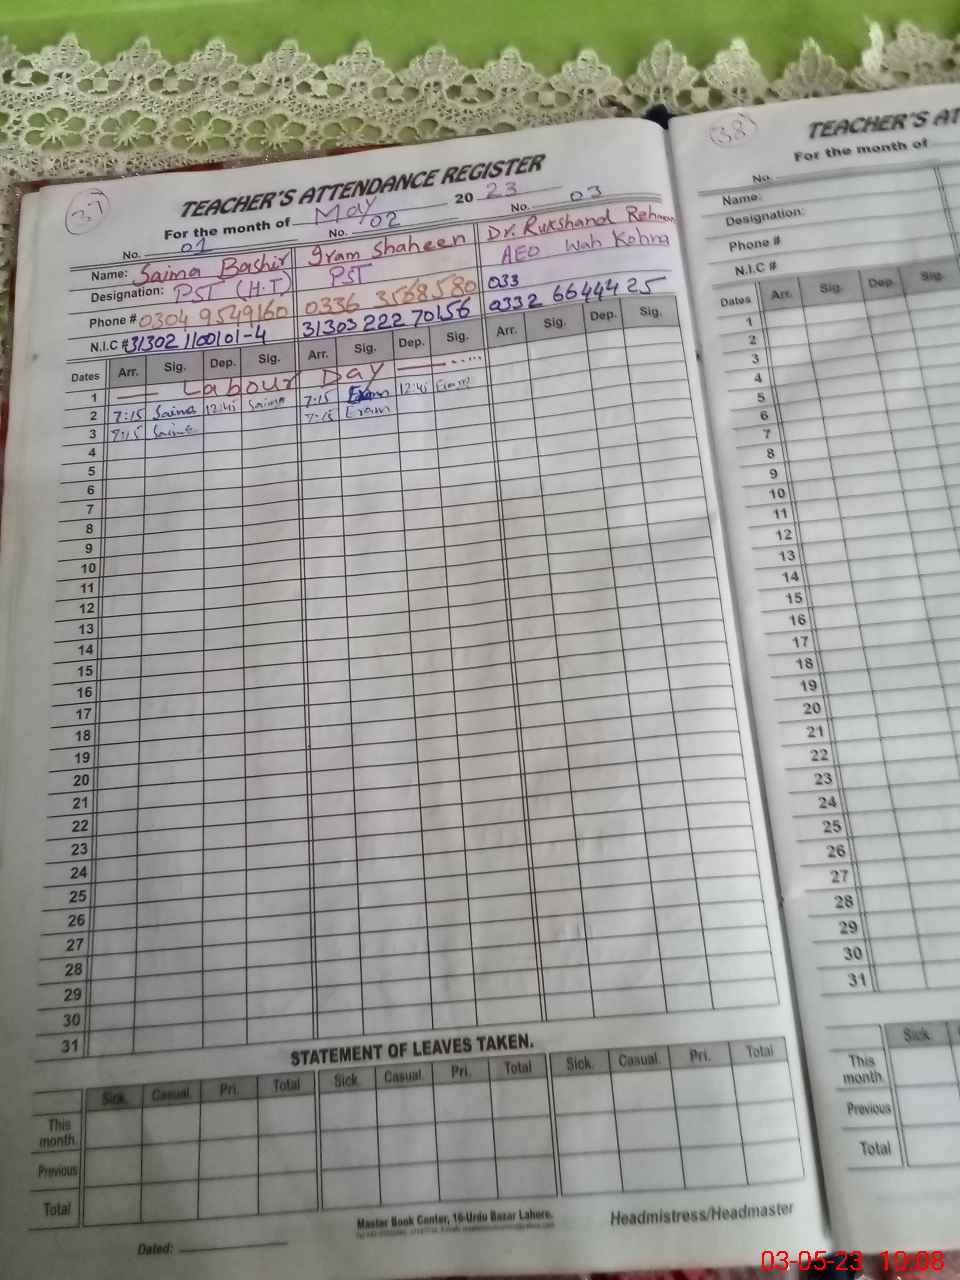 37
TEACHER'S ATTENDANCE REGISTER
For the month of May 20 23
No. 01 No. 02 No. 03
Name: Saima Bashir Iram Shaheen Dr. Rukshand Rehman
Designation: PST (H.T) PST AEO Wah Kohna
Phone # 0304 9549160 0336 3568580 033
N.I.C # 31302 1100101-4 31303 222 70156 0332 66444 25
Dates Arr. Sig. Dep. Sig. Arr. Sig. Dep. Sig. Arr. Sig. Dep. Sig.
1 Labour Day
2 7:15 Saima 12:45 Saima 7:15 Eram 12:45 Eram
3 7:15 Saima 7:15 Eram
4
5
6
7
8
9
10
11
12
13
14
15
16
17
18
19
20
21
22
23
24
25
26
27
28
29
30
31
STATEMENT OF LEAVES TAKEN.
Sick. Casual. Pri. Total Sick. Casual. Pri. Total Sick. Casual. Pri. Total
This month.
Previous
Total
Master Book Center, 16-Urdu Bazar Lahore.
Dated: Headmistress/Headmaster
38
TEACHER'S ATT
For the month of
No.
Name:
Designation:
Phone #
N.I.C #
Dates Arr. Sig. Dep. Sig.
1
2
3
4
5
6
7
8
9
10
11
12
13
14
15
16
17
18
19
20
21
22
23
24
25
26
27
28
29
30
31
Sick.
This month.
Previous
Total
03-05-23 10:08